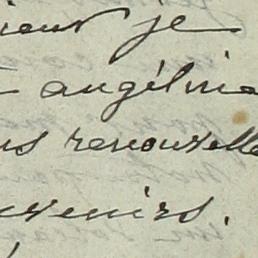 ieux je
angélina
us renouvelle
uvenirs.